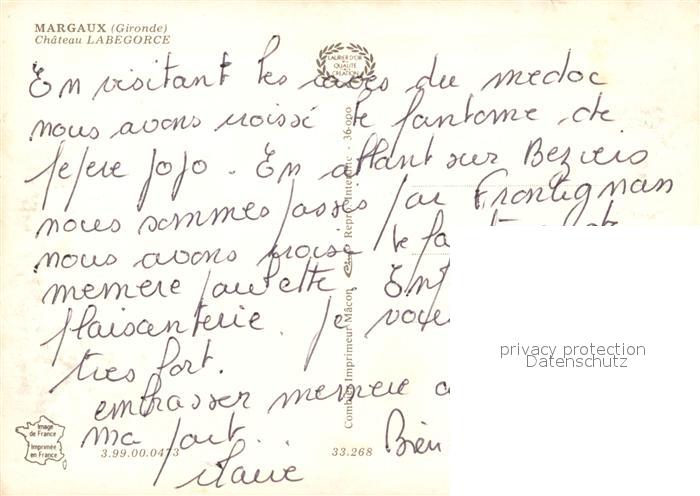 MARGAUX (Gironde)
Château LABEGORCE
LAURIER D'OR
DE LA
QUALITÉ
CREATION
En visitant les caves du medoc
nous avons croisé le fantome de
pepere jojo. En allant sur Beziers
nous sommes passés par Frontignan
nous avons croisé le
memere paulette.
plaisanterie. je vous
tres fort.
embrasser memere
ma part.
Bien
Combier Imprimeur Mâcon
Repro. Interdite - 36.000
Image
de France
Imprimée
en France
3.99.00.0473
33.268
privacy protection
Datenschutz